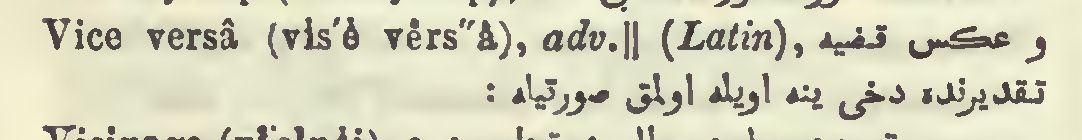 Vice versâ (vi̊s′ė vėrs″å), adv.‖ (Latin), و عكس قضيه
تقديرنده دخى ينه اويله اولمق صورتيله :